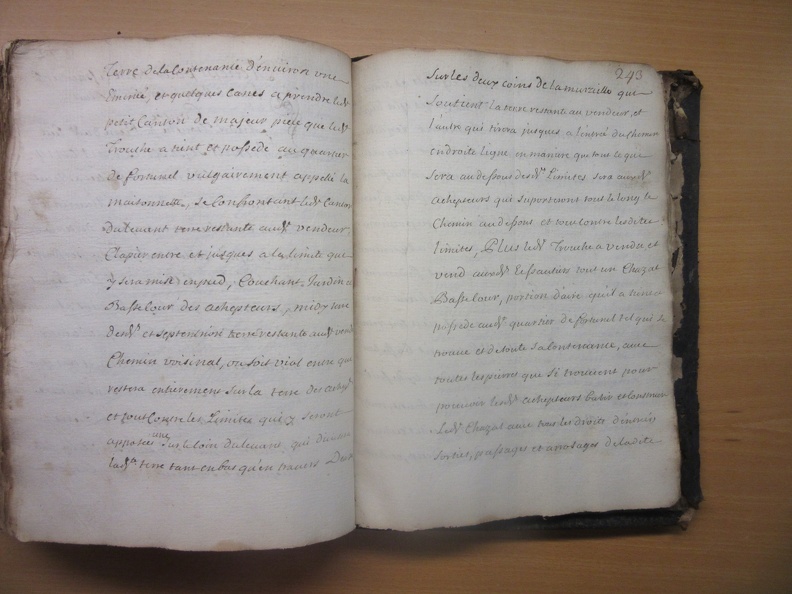 Terre de la Contenance d'environ une
Eminée, et quelques Canes a prendre led.
petit Canton de majeur piece que led.
Trouche a tient et possede au quartier
de fortunel vulgairement appellé la
maisonnette, se Confrontant led. Canton
Du levant terre restante aud. vendeur
Clapier entre et jusques a la limite que
y sera mise en pied, Couchant Jardin et
Basse Cour des achepteurs, midy terre
desd. et septentrion terre restante aud. vend
Chemin voisinal, ou soit viol entre que
restera entierement sur la terre des achept
et tout Contre les Limites qui y seront
apposées une sur le Coin du levant, qui
lad. terre tant en bas qu'en travers
243
Sur les deux coins de la muraille que
Soutient la terre restante au vendeur, et
l'autre qui tirera jusques a l'entrée du chemin
en droite ligne en maniere que tout ce que
sera au dessous desd. Limites sera auxd.
achepteurs qui suporteront tout le long le
Chemin au dessous et tout contre lesdites
limites, Plus led. Trouche a vendu et
vend auxd. tout un Chazal
Basse Cour, portion d'aire qu'il a tient
possede aud. quartier de fortunel tel qui se
trouve et de toute sa contenance, avec
toutes les pierres que se trouvent pour
pouvoir lesd. achepteurs batir
led. Chazal avec tous les droits d'entrées
sorties, passages et arrosages de ladite